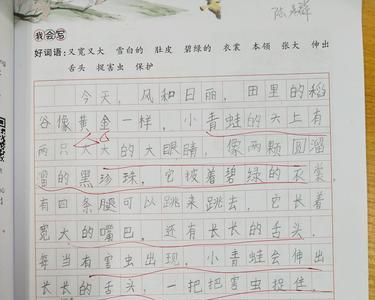 我会写
好词语：又宽又大 雪白的 肚皮 碧绿的 衣裳 本领 张大 伸出
舌头 捉害虫 保护
今天，风和日丽，田里的稻
谷像黄金一样，小青蛙的头上有
两只大大的大眼睛，像两颗圆溜
溜的黑珍珠，它披着碧绿的衣裳
有四条腿可以跳来跳去，它长着
宽大的嘴巴，还有长长的舌头，
每当有害虫出现，小青蛙会伸出
长长的舌头，一把把害虫捉住，